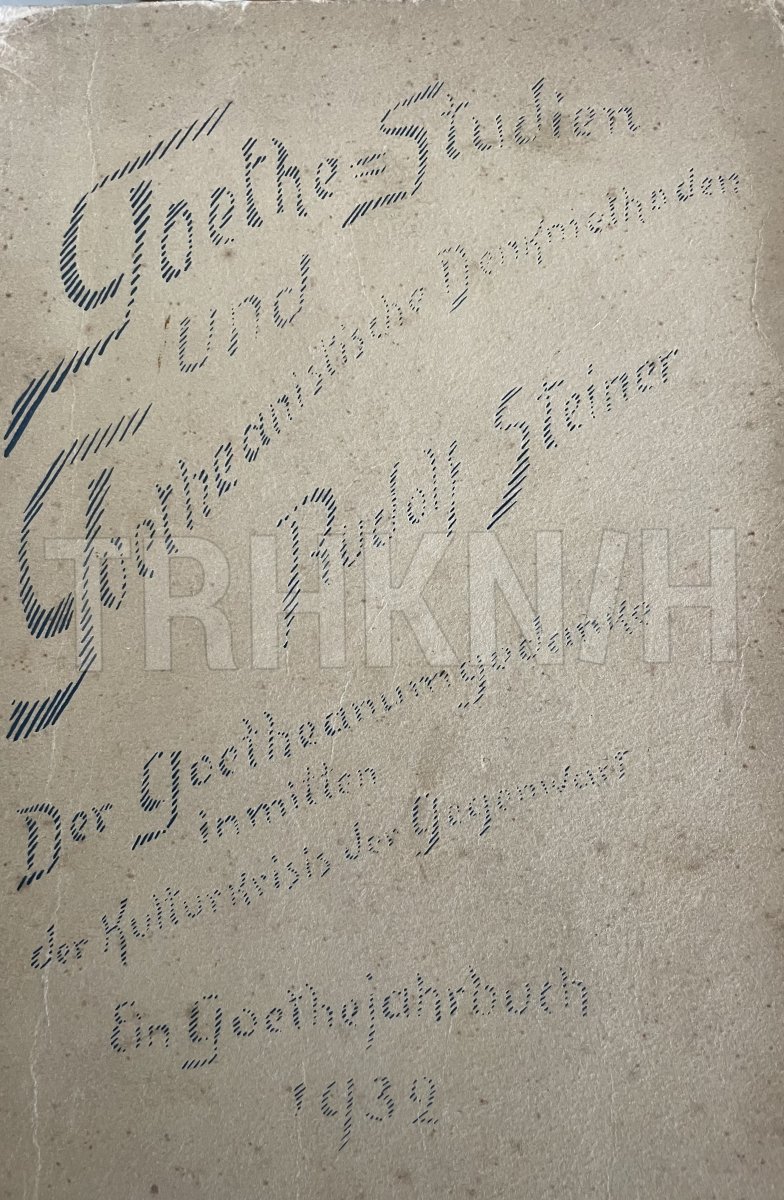 Goethe=Studien
und
Goetheanistische Denkmethoden
Rudolf Steiner
TRHKN/H
Der Goetheanumgedanke
inmitten
der Kulturkrisis der Gegenwart
Ein Goethejahrbuch
1932